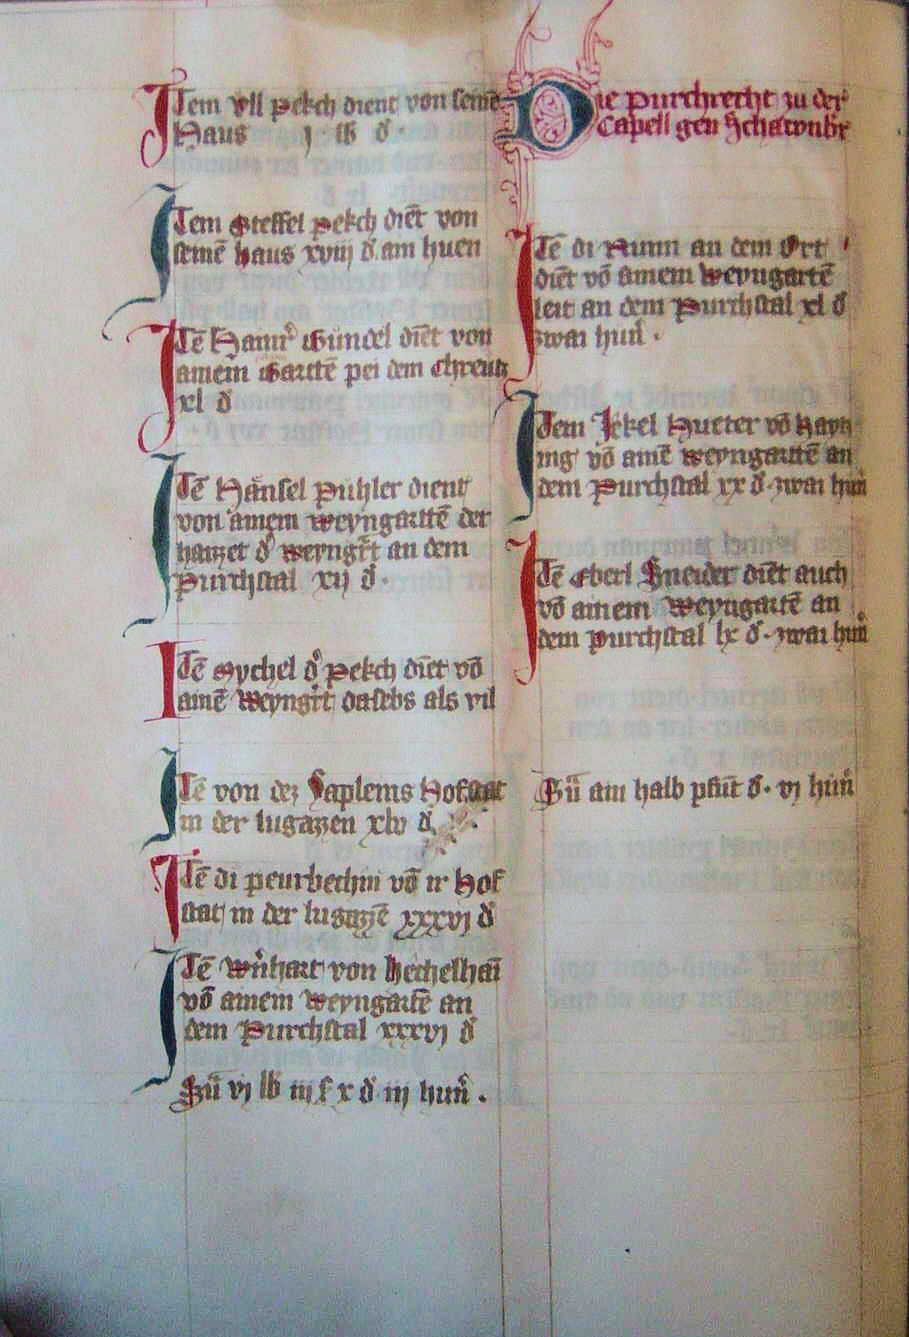 Item vll pekch dient von seinē
Haus j lb đ
Item Steffel pekch diēt von
seinē haus xviij đ am huen
Itē Hainr̄ Gundel diēt von
ainem Gartē pei dem chreutz
xl đ
Itē Hänsel pühler dient
von ainem weyngarttē der
haizzet đ weyngr̄t an dem
Purchstal xij đ·
Itē Mychel đ Pekch diēt vō
ainē Weyngr̄t daselbs als vil
Itē von dez Sapleins Hofstat
in der lugazzen xlv đ
Itē di peurbechin vō ir Hof
stat in der lugazzē xxxvj đ
Itē Wr̄nhart von hechelhaī
vō ainem Weyngartē an
dem Purchstal xxxvj đ
Sū vj lb iij ſ x đ iij hun̄ .
Die purchrecht zu der
Capell gen Schawnbr
Itē di Nunn an dem Ort
diēt vō ainem weyngartē
leit an dem Purchstal xl đ
zwai hun̄ .
Item Jekel Hueter vō hayn
ing vō ainē weyngarttē an
dem purchstal xx đ zwai hun̄
Itē Eberl Sneider diēt auch
vō ainem weyngartē an
dem purchstal lx đ· zwai hun̄
Sū ain halb pfūt đ· vj hun̄